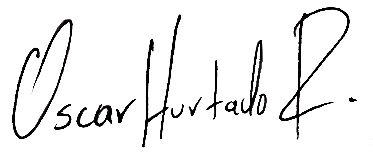 Oscar Hurtado R.